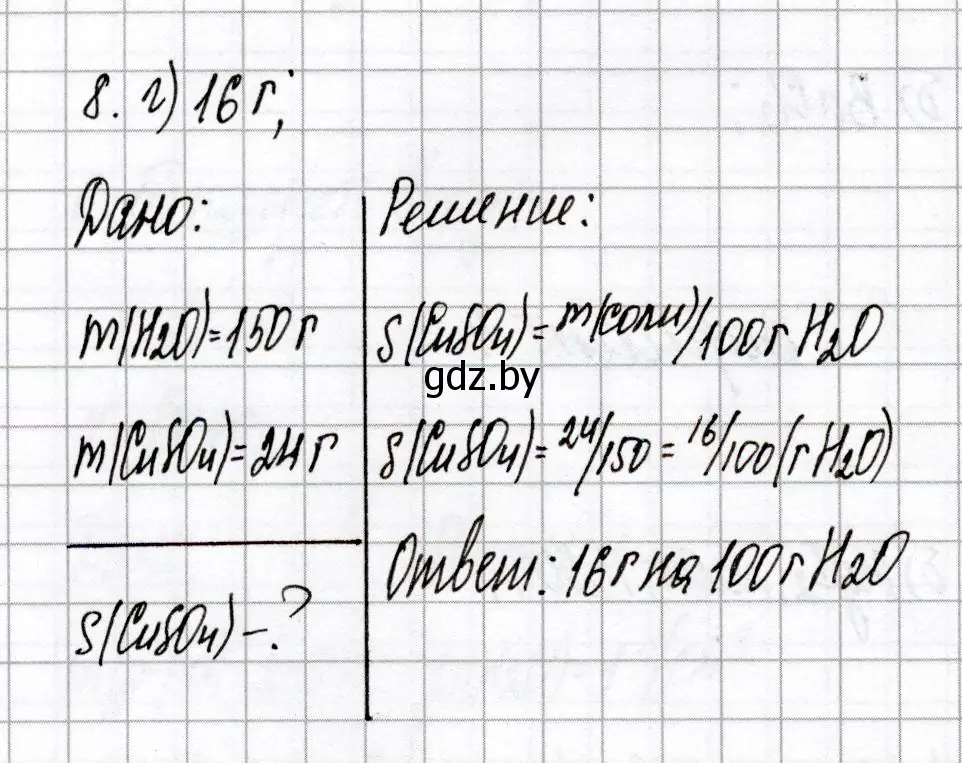 8. г) 16 г;
Дано:
m(H₂O)=150 г
m(CuSO₄)=24 г
S(CuSO₄) – ?
Решение:
S(CuSO₄)= m(соли)/100 г H₂O
gdz.by
S(CuSO₄)= 24/150 = 16/100(г H₂O)
Ответ: 16 г на 100 г H₂O